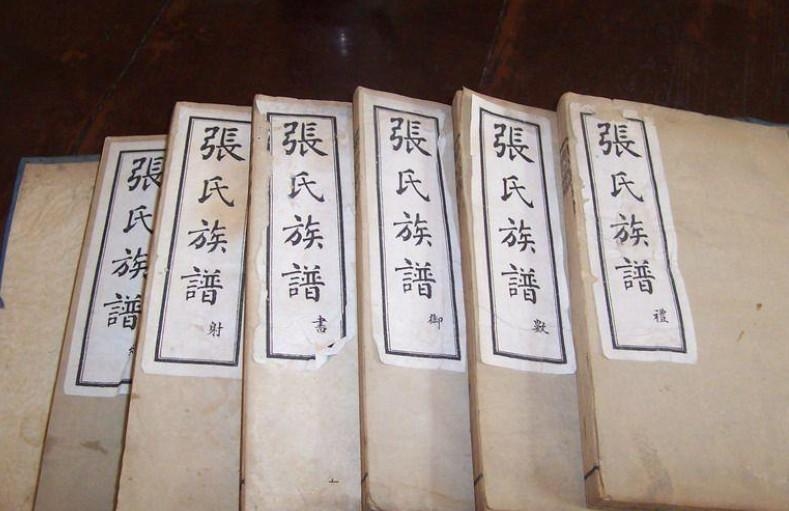 張氏族譜
禮
張氏族譜
數
張氏族譜
御
張氏族譜
書
張氏族譜
射
張氏族譜